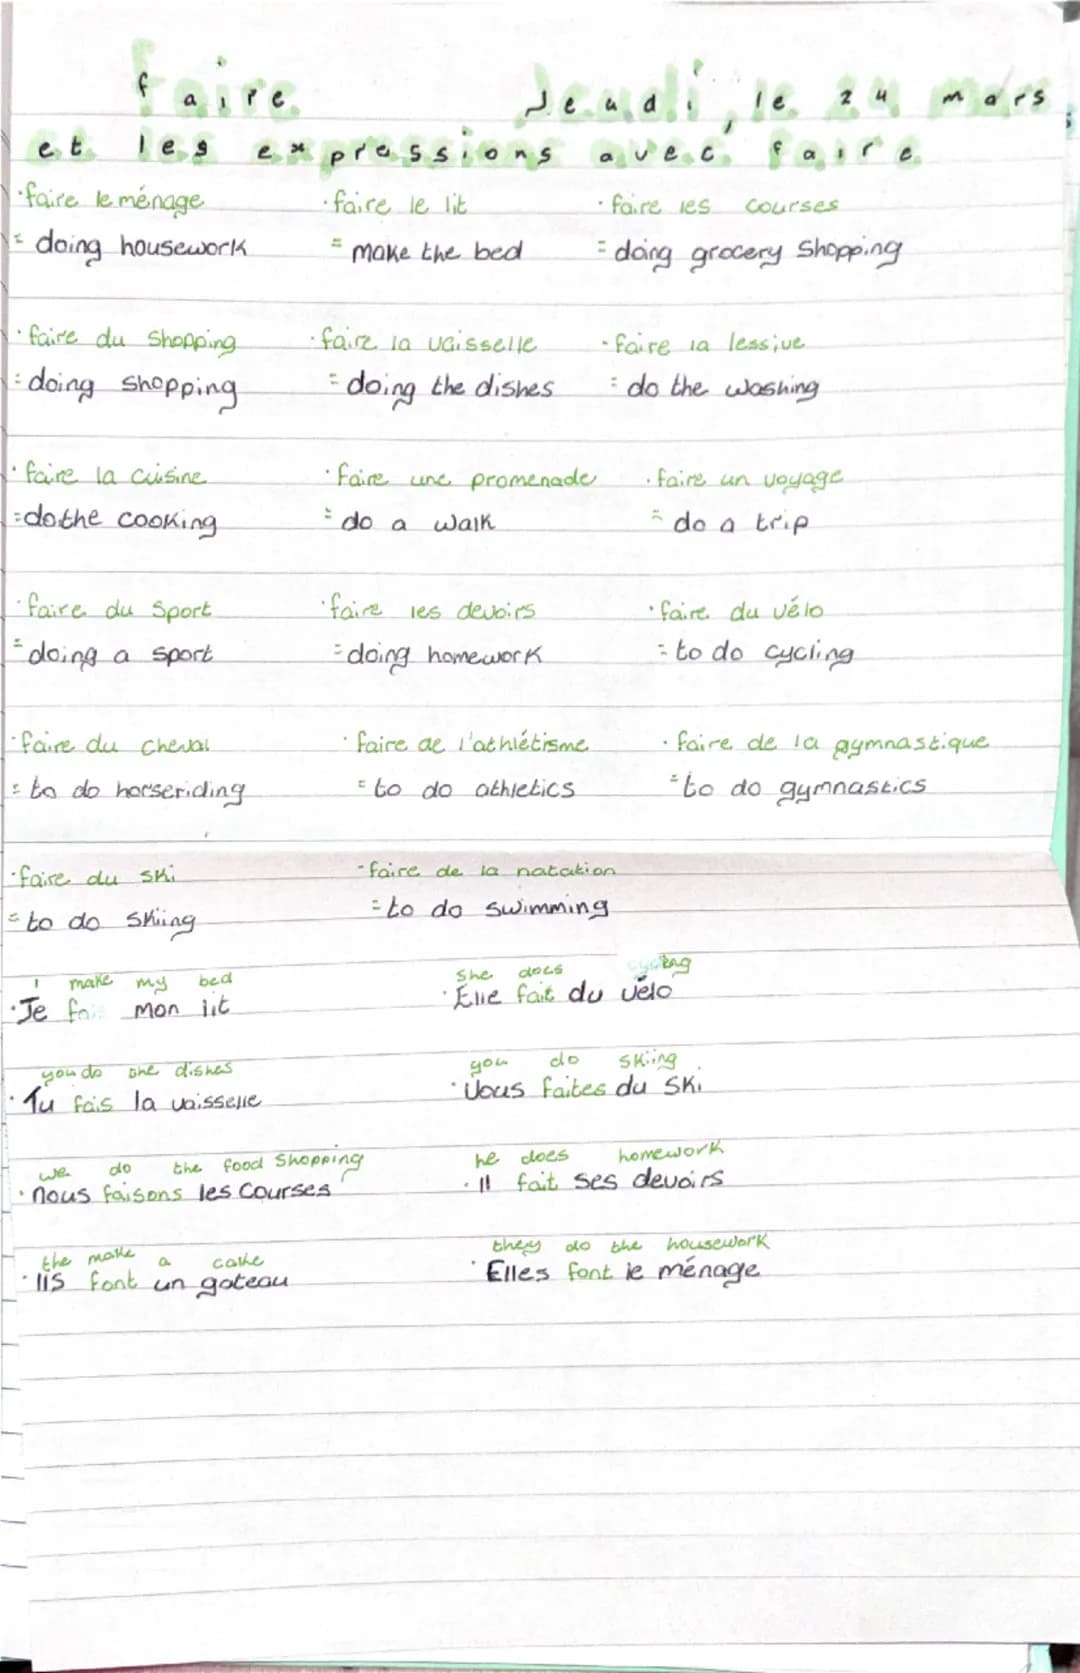 faire Jeudi, le 24 mars
et les expressions avec faire
·faire le ménage ·faire le lit ·faire les courses
= doing housework = make the bed = doing grocery shopping
·faire du shopping ·faire la vaisselle ·faire la lessive
= doing shopping = doing the dishes = do the washing
·faire la cuisine ·faire une promenade ·faire un voyage
= do the cooking = do a walk = do a trip
·faire du sport ·faire les devoirs ·faire du vélo
= doing a sport = doing homework = to do cycling
·faire du cheval ·faire de l'athlétisme ·faire de la gymnastique
= to do horseriding = to do athletics = to do gymnastics
·faire du ski ·faire de la natation
= to do skiing = to do swimming
I make my bed She does cycling
·Je fais mon lit ·Elle fait du vélo
you do the dishes you do skiing
·Tu fais la vaisselle ·Vous faites du ski
we do the food shopping he does homework
·nous faisons les courses ·Il fait ses devoirs
the make a cake they do the housework
·Ils font un gateau ·Elles font le ménage